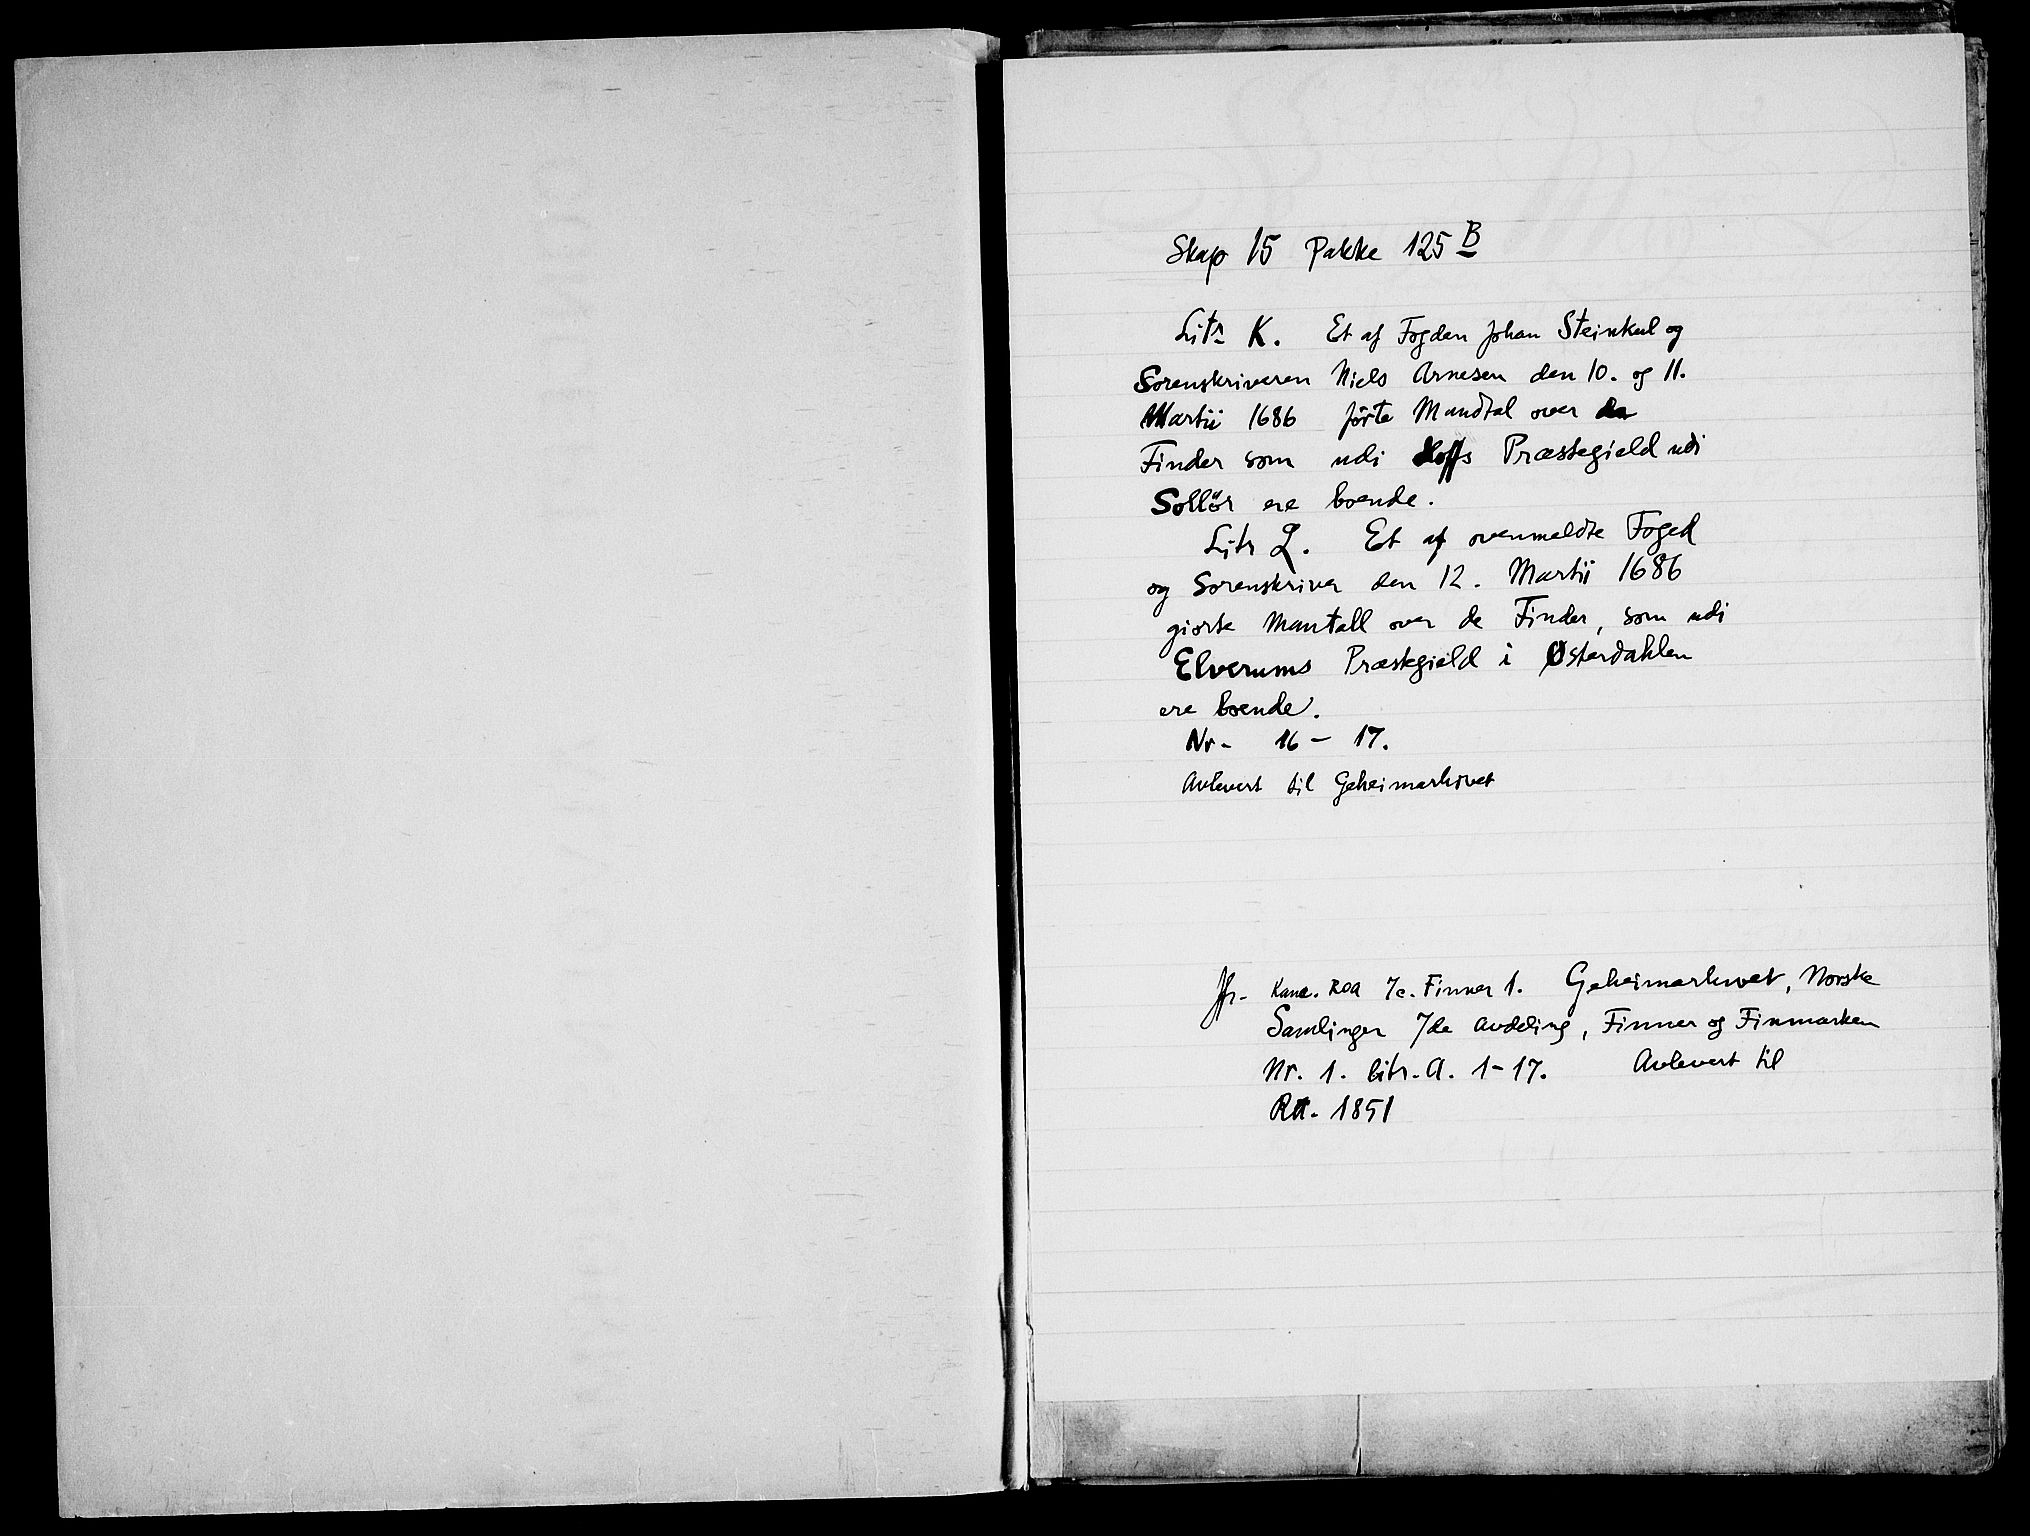 Skap 15 Pakke 125 B
Litr K. Et af Fogden Johan Steinkul og
Sorenskriveren Niels Arnesen den 10. og 11.
Martii 1686 förte Mandtal over de
Finder som udi Hoffs Præstegield udi
Sollör ere boende.
Litr L. Et af ovenmeldte Foged
og Sorenskriver den 12. Martii 1686
giorte Mantall over de Finder, som udi
Elverums Præstegield i Østerdahlen
ere boende.
Nr. 16 - 17.
Avlevert til Geheimarkivet
Jfr. Kanc. Roa 7c. Finner 1. Geheimarkivet, Norske
Samlinger 7de avdeling, Finner og Finmarken
Nr. 1. litr. A. 1-17. Avlevert til
RA. 1851